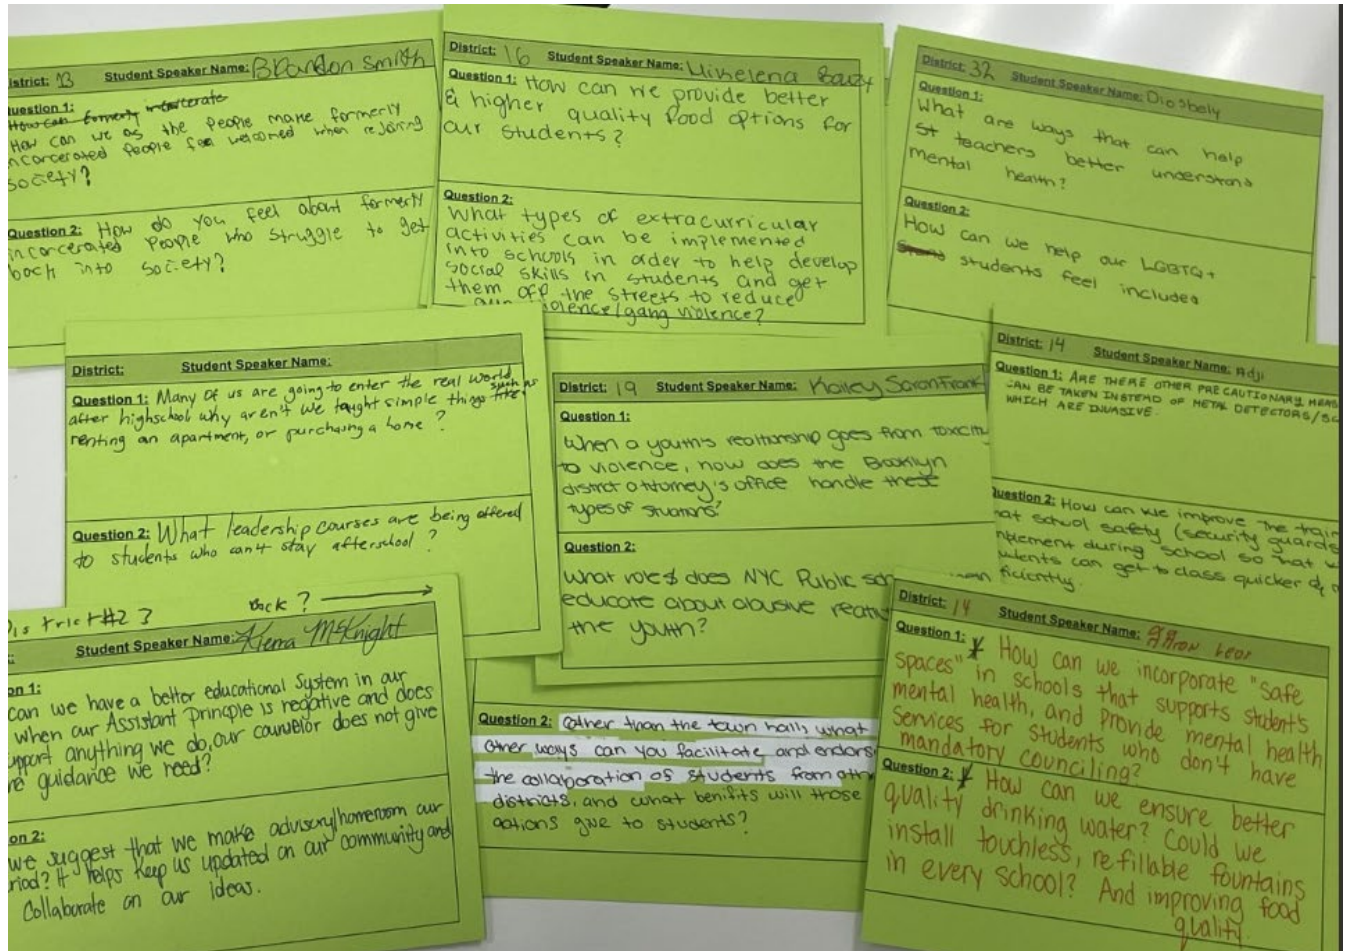 District: 13 Student Speaker Name: Brandon Smith
Question 1:
How can formerly incarcerate
How can we as the People make formerly
incarcerated People feel welcomed when rejoining
society?
Question 2: How do you feel about formerly
incarcerated People who struggle to get
back into society?
District: 16 Student Speaker Name:
Question 1: How can we provide better
& higher quality food options for
our students?
Question 2:
What types of extracurricular
activities can be implemented
into schools in order to help develop
social skills in students and get
them off the streets to reduce
violence/gang violence?
District: 32 Student Speaker Name: Diosbely
Question 1:
What are ways that can help
st teachers better understand
mental health?
Question 2:
How can we help our LGBTQ+
students feel included
District: Student Speaker Name:
Question 1: Many of us are going to enter the real world
after highschool why aren't we taught simple things like such as
renting an apartment, or purchasing a home?
Question 2: What leadership courses are being offered
to students who can't stay afterschool?
District: 19 Student Speaker Name: Kailey
Question 1:
When a youth's realtionship goes from toxicity
to violence, how does the Brooklyn
district attorney's office handle these
types of situations?
Question 2:
What role does NYC Public
educate about abusive
the youth?
District: 14 Student Speaker Name: Adji
Question 1: ARE THERE OTHER PRECAUTIONARY MEAS
CAN BE TAKEN INSTEAD OF METAL DETECTORS/SC
WHICH ARE INVASIVE.
Question 2: How can we improve the train
at school safety (security guards
mplement during school so that w
udents can get to class quicker &
ficiently.
District #23 Back?
Student Speaker Name: Kierra McKnight
on 1:
can we have a better educational System in our
when our Assistant Principle is negative and does
pport anything we do, our counselor does not give
guidance we need?
on 2:
we suggest that we make advisory/homeroom our
riod? It helps keep us updated on our community and
Collaborate on our ideas.
Question 2: Other than the town halls what
other ways can you facilitate and endors
the collaboration of students from oth
districts, and what benifits will those
actions give to students?
District: 14 Student Speaker Name:
Question 1: How can we incorporate "safe
spaces" in schools that supports student's
mental health, and provide mental health
services for students who don't have
mandatory counciling?
Question 2: How can we ensure better
quality drinking water? Could we
install touchless, refillable fountains
in every school? And improving food
quality.